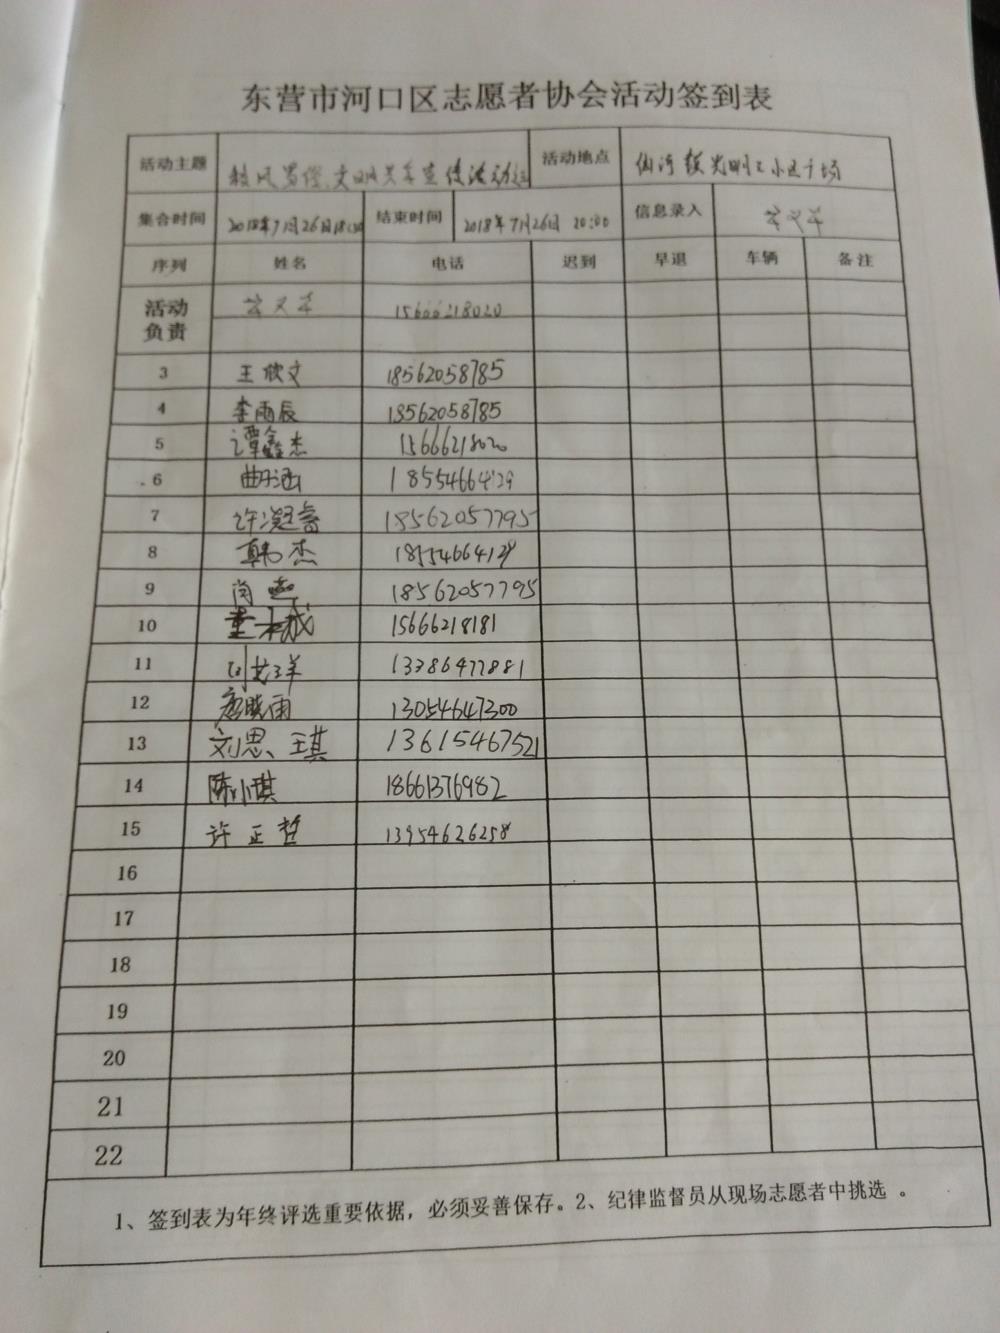 东营市河口区志愿者协会活动签到表
活动主题 移风易俗、文明共享宣传活动 活动地点 仙河镇光明 小区广场
集合时间 2018年7月26日18:30 结束时间 2018年7月26日 20:00 信息录入
序列 姓名 电话 迟到 早退 车辆 备注
活动负责 15666218020
3 王欣文 18562058785
4 李雨辰 18562058785
5 谭鑫杰 15666218020
6 曲涵 18554664129
7 许凝睿 18562057795
8 韩杰 18554664129
9 18562057795
10 15666218181
11 13386477881
12 唐晓雨 13054647300
13 刘思、王琪 13615467521
14 陈小琪 18661376982
15 许正哲 13954626258
16
17
18
19
20
21
22
1、签到表为年终评选重要依据，必须妥善保存。2、纪律监督员从现场志愿者中挑选 。